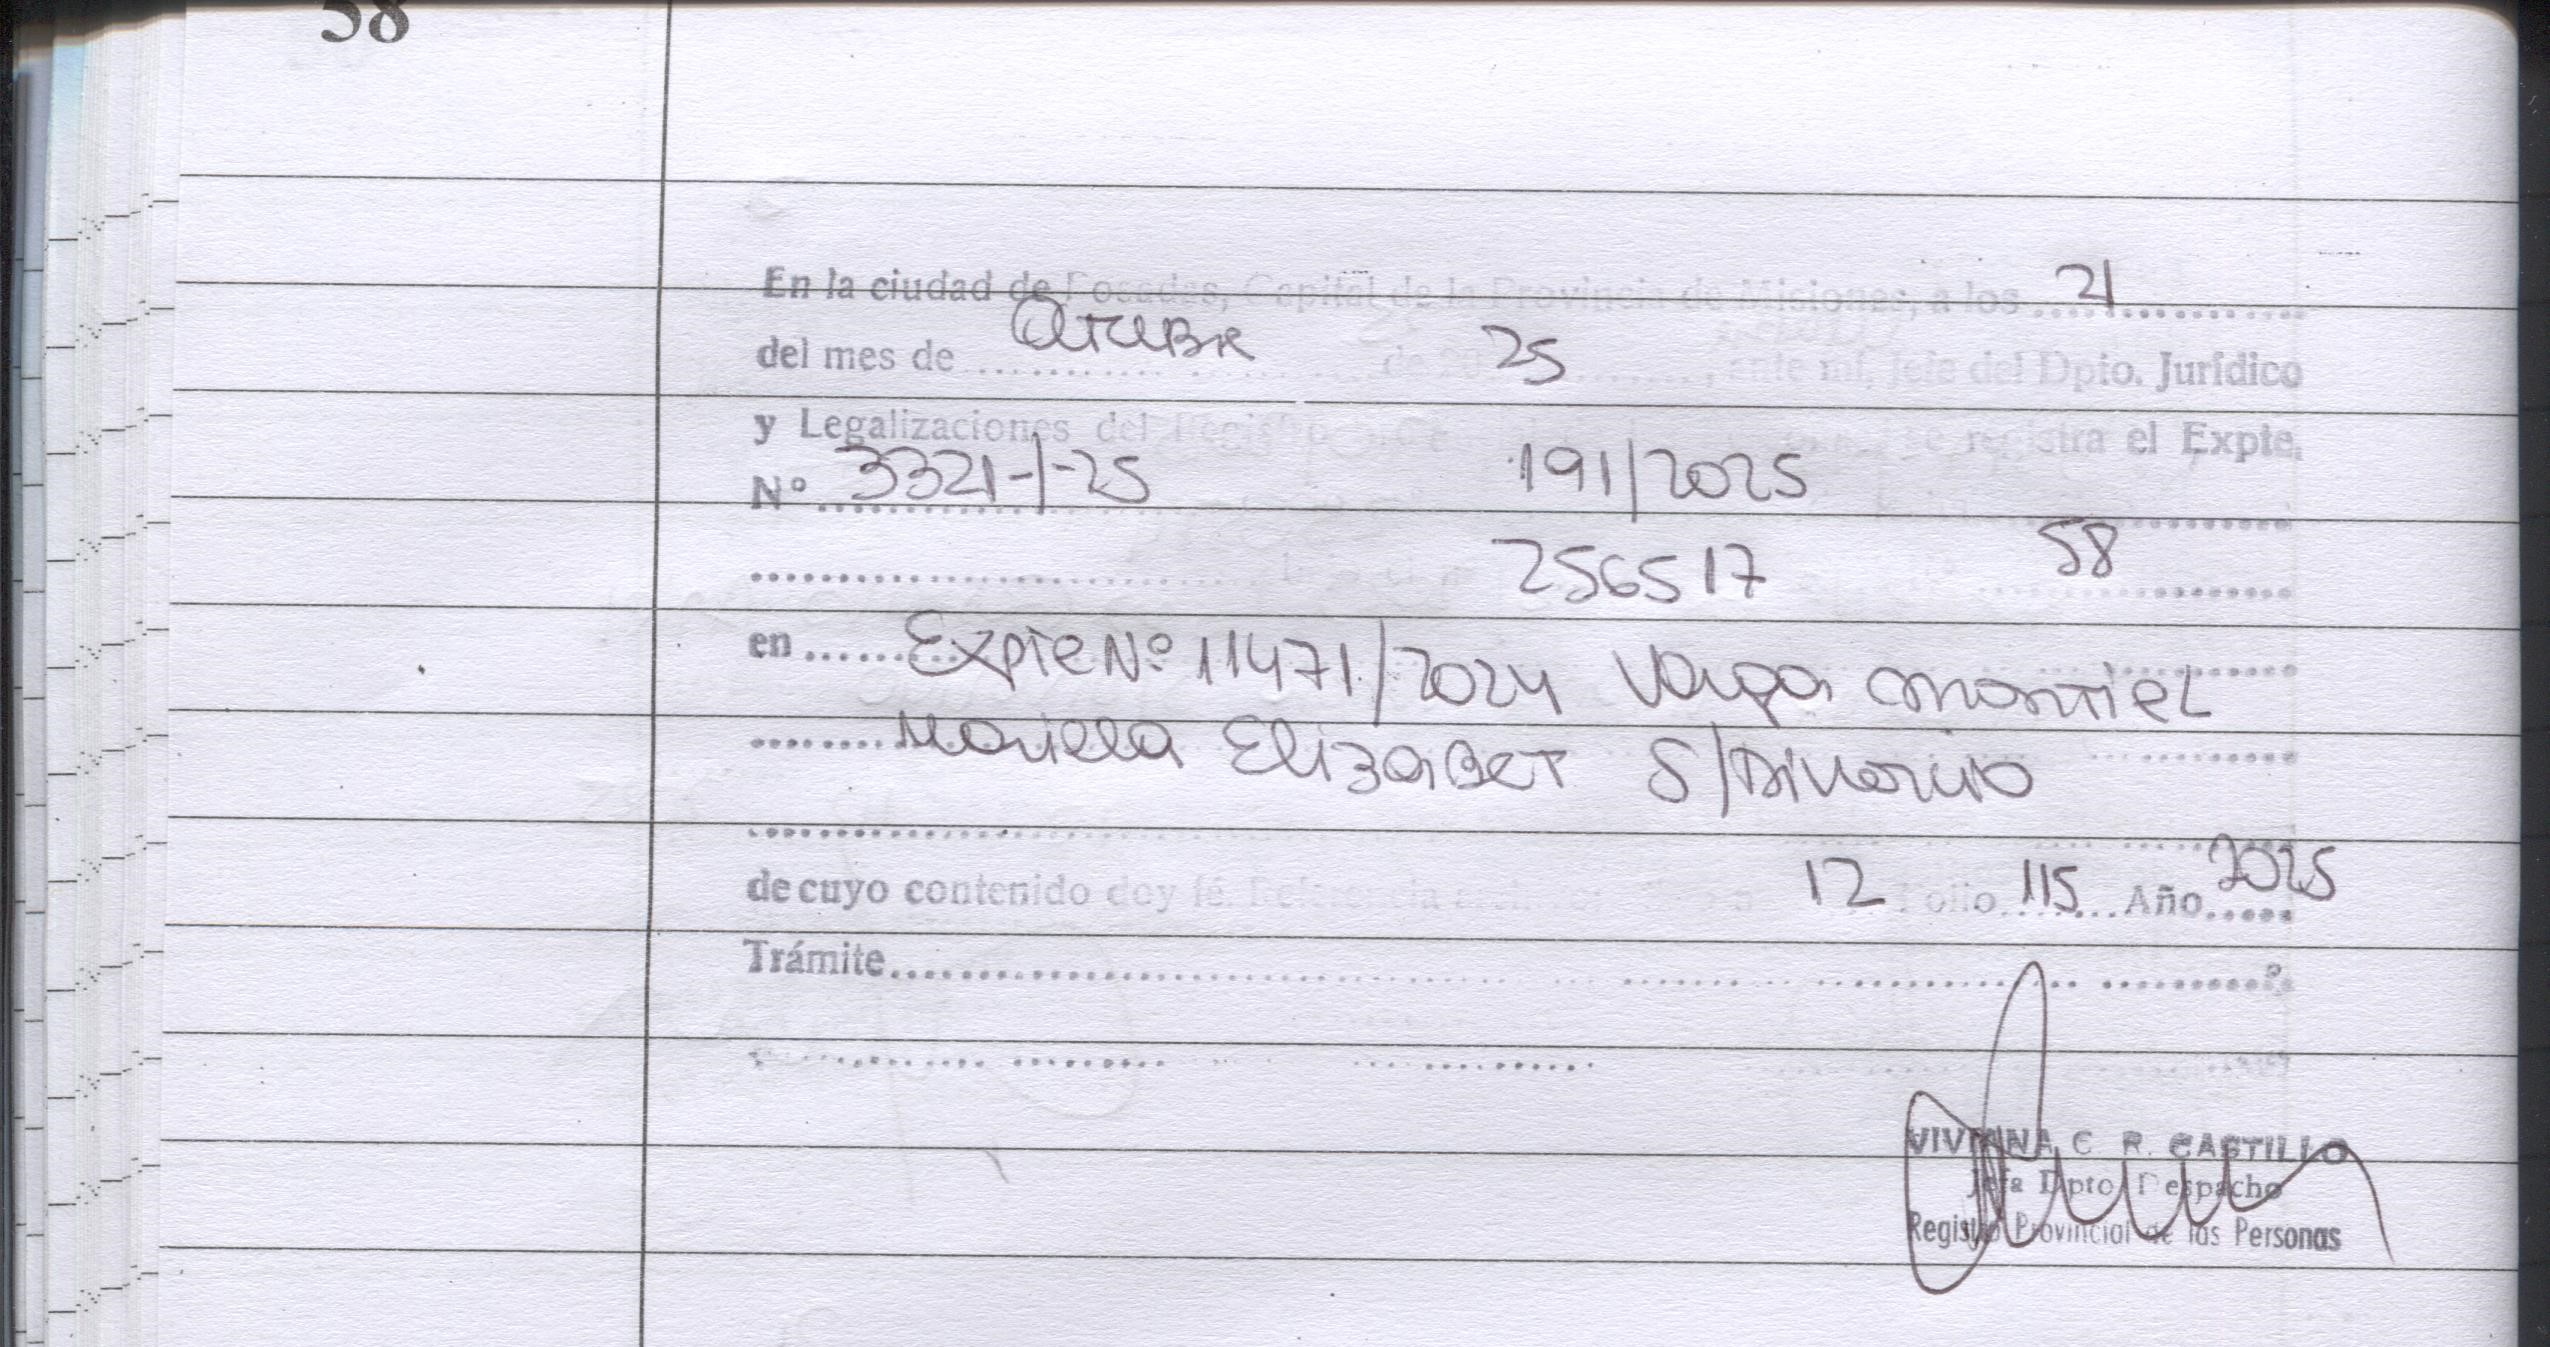 58
En la ciudad de Posadas, Capital de la Provincia de Misiones, a los 21
del mes de Octubre de 20 25, ante mí, Jefe del Dpto. Jurídico
y Legalizaciones del Registro se registra el Expte.
Nº 3321-1-25 191/2025
256517 58
en Expte Nº 11471/2024 Varga Montiel
Mariela Elizabet S/Divorcio
de cuyo contenido doy fé. Referencia 12 Folio 115 Año 2025
Trámite
VIVIANA C. R. CASTILLO
Jefa Dpto. Despacho
Registro Provincial de las Personas